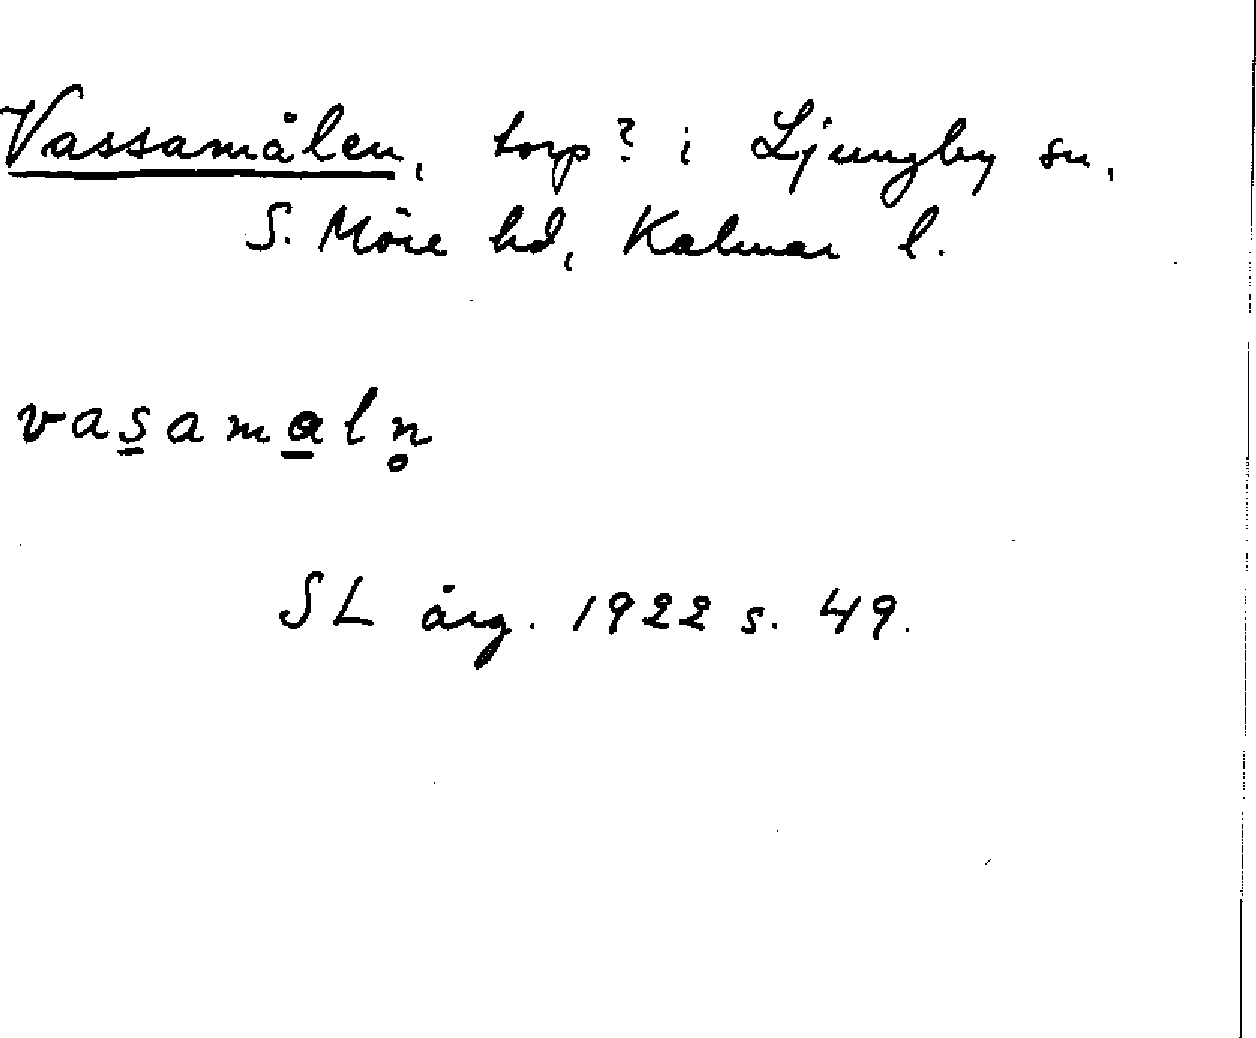 Vassamålen, torp? i Ljungby sn,
S. Möre hd, Kalmar l.
vas̠ama̠ln̥
SL årg. 1922 s. 49.